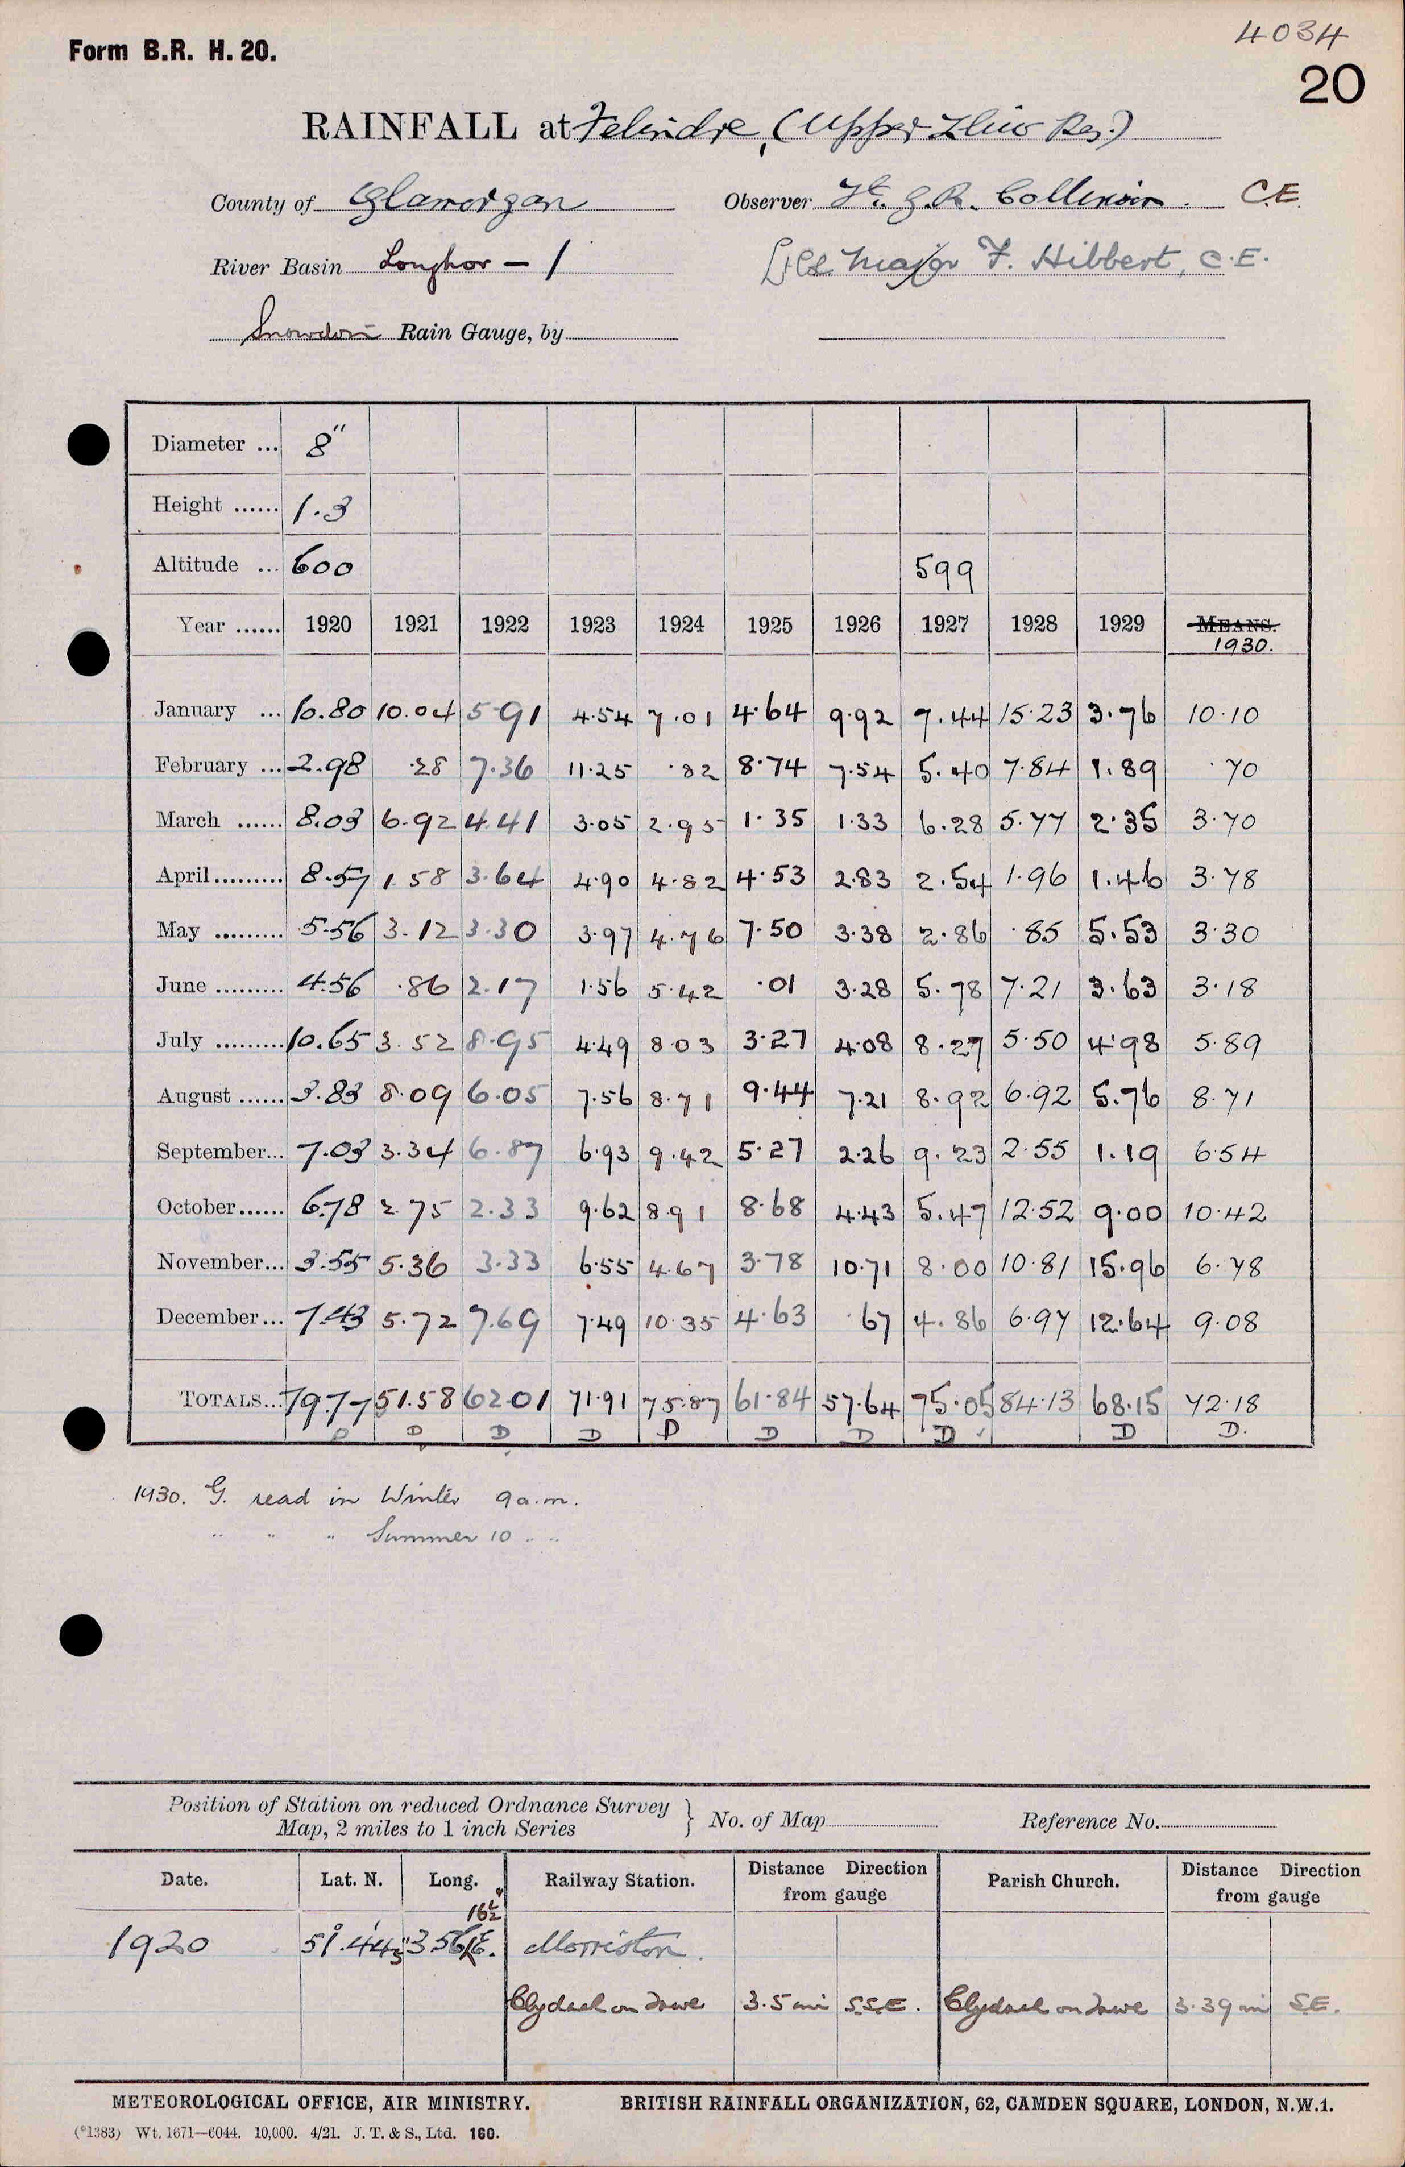 4034
Form B.R. H. 20.
20
RAINFALL at Felindre, (Upper Lliw Res.)
County of Glamorgan Observer Lt. G.R. Collinson. C.E.
River Basin Loughor — 1 Major F. Hibbert, C.E.
Snowdon Rain Gauge, by
Diameter ... 8"
Height ...... 1.3
Altitude ... 600 599
Year ...... 1920 1921 1922 1923 1924 1925 1926 1927 1928 1929 MEANS.
1930.
January ... 10.80 10.04 5.91 4.54 7.01 4.64 9.92 7.44 15.23 3.76 10.10
February ... 2.98 .28 7.36 11.25 .82 8.74 7.54 5.40 7.84 1.89 .70
March ...... 8.03 6.92 4.41 3.05 2.95 1.35 1.33 6.28 5.77 2.35 3.70
April ......... 8.57 1.58 3.64 4.90 4.82 4.53 2.83 2.54 1.96 1.46 3.78
May ......... 5.56 3.12 3.30 3.97 4.76 7.50 3.38 2.86 .85 5.53 3.30
June ......... 4.56 .86 2.17 1.56 5.42 .01 3.28 5.78 7.21 3.63 3.18
July ......... 10.65 3.52 8.95 4.49 8.03 3.27 4.08 8.27 5.50 4.98 5.89
August ...... 3.83 8.09 6.05 7.56 8.71 9.44 7.21 8.92 6.92 5.76 8.71
September... 7.03 3.34 6.87 6.93 9.42 5.27 2.26 9.23 2.55 1.19 6.54
October...... 6.78 2.75 2.33 9.62 8.91 8.68 4.43 5.47 12.52 9.00 10.42
November... 3.55 5.36 3.33 6.55 4.67 3.78 10.71 8.00 10.81 15.96 6.78
December... 7.43 5.72 7.69 7.49 10.35 4.63 .67 4.86 6.97 12.64 9.08
TOTALS... 79.77 51.58 62.01 71.91 75.87 61.84 57.64 75.05 84.13 68.15 72.18
D D D D D D D D ✓ D D.
1930. G. read in Winter 9 a.m.
" " " Summer 10 " "
Position of Station on reduced Ordnance Survey
Map, 2 miles to 1 inch Series } No. of Map Reference No.
Date. Lat. N. Long. Railway Station. Distance from gauge Direction Parish Church. Distance from gauge Direction
16½
1920 51°.44' 3 56 Morriston.
Clydach on Tawe 3.5 mi S.S.E. Clydach on Tawe 3.39 mi S.E.
METEOROLOGICAL OFFICE, AIR MINISTRY. BRITISH RAINFALL ORGANIZATION, 62, CAMDEN SQUARE, LONDON, N.W.1.
(*1383) Wt. 1671—6044. 10,000. 4/21. J. T. & S., Ltd. 160.